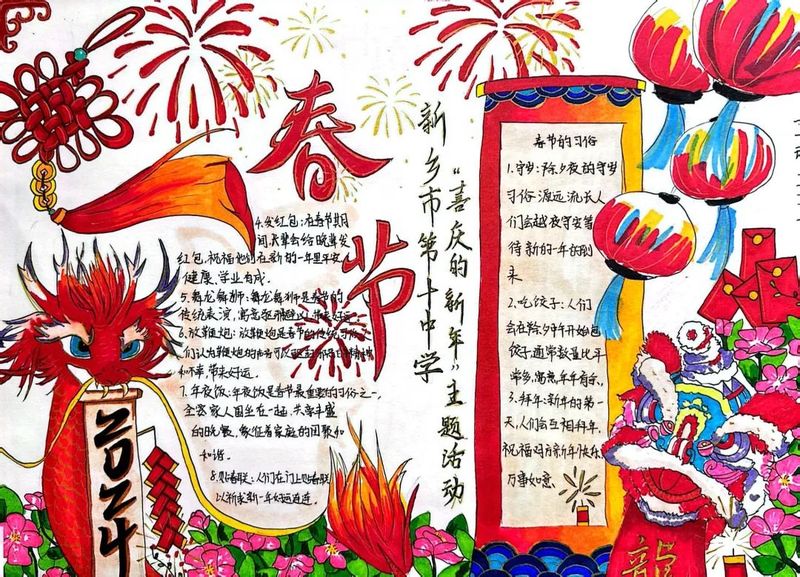 春节
新乡市第十中学
“喜庆的新年”主题活动
春节的习俗
1.守岁:除夕夜的守岁
习俗源远流长人
们会越夜守岁等
待新的一年的到
来
2.吃饺子:人们
会在除夕开始包
饺子通常
3.拜年:新年的第一
天,人们会互相拜年,
祝福对方新年快乐
万事如意.
4.发红包:在春节期
间,长辈会给晚辈发
红包,祝福他们在新的一年里平安
健康、学业有成.
5.舞龙舞狮:舞龙舞狮是春节的
传统表演,寓意
6.放鞭炮:放鞭炮是春节的传统习俗
们认为鞭炮的
和不幸,带来好运.
7.年夜饭:年夜饭是春节最重要的习俗之一,
全家家人围坐在一起,共享丰盛
的晚餐,象征着家庭的团聚和
和谐.
8.贴春联:人们在门上贴春联
以祈求新一年好运连连.
2024
龍